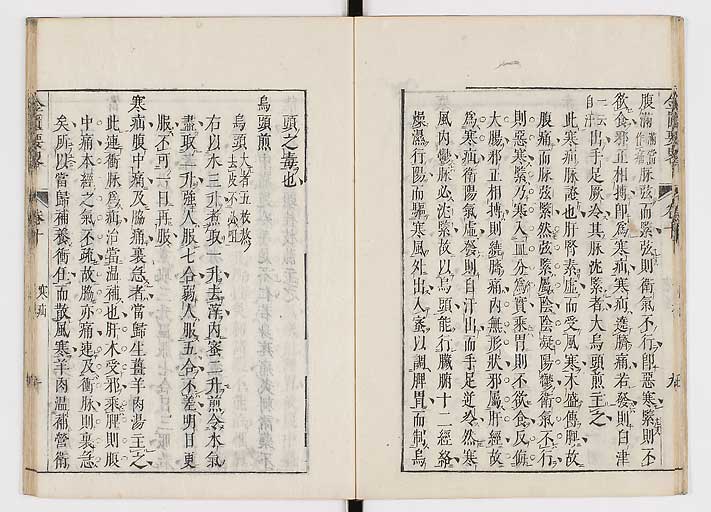 腹滿脉弦而緊弦則衛氣不行即惡寒緊則不
欲食邪正相搏即爲寒疝寒疝遶臍痛若發則白津
出手足厥冷其脉沈緊者大烏頭煎主之
此寒疝脉證也肝腎素虛而受風寒木盛傳脾故
腹痛而脉弦緊然弦緊屬陰陰凝陽鬱衛氣不行
則惡寒緊乃寒入血分爲實乘胃則不欲食反侮
大腸邪正相搏則繞臍痛内無形狀邪屬肝經故
爲寒疝衛陽氣虛發則自汗出而手足逆冷然寒
風内鬱脉必沈緊故以烏頭能行臟腑十二經絡
燥濕行陽而驅寒風外出入蜜以調脾胃而制烏
頭之毒也
烏頭煎
烏頭大者五枚熬去皮不㕮咀
右以水三升煮取一升去滓内蜜二升煎令水氣
盡取二升強人服七合弱人服五合不差明日更
服不可一日再服
寒疝腹中痛及脇痛裏急者當歸生薑羊肉湯主之
此連衝脉爲疝治當温補也肝木受邪乘脾則腹
中痛本經之氣不疏故脇亦痛連及衝脉則裏急
矣所以當歸補養衝任而散風寒羊肉温補營衛
金匱要畧
卷十
寒疝